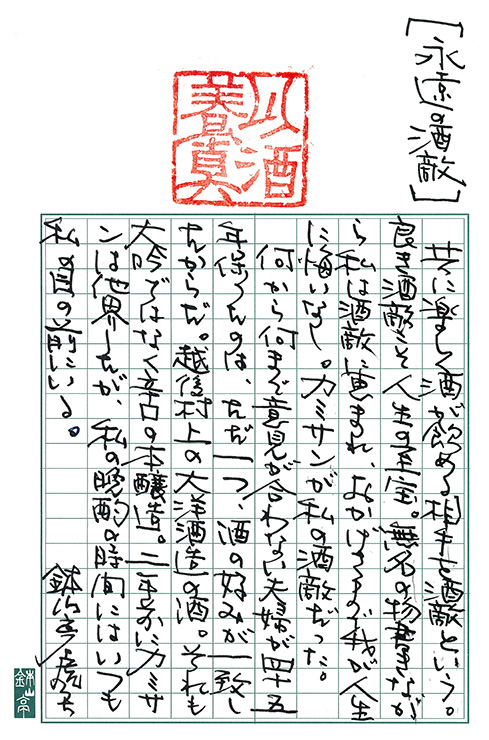 [永遠の酒敵]
以酒
養真
共に楽しく酒が飲める相手を酒敵という。
良き酒敵こそ人生の至宝。無名の物書きなが
ら私は酒敵に恵まれ、おかげさまで我が人生
に悔いなし。カミサンが私の酒敵だった。
何から何まで意見が合わない夫婦が四十五
年保ったのは、ただ一つ、酒の好みが一致し
たからだ。越後村上の大洋酒造の酒。それも
大吟ではなく辛口の本醸造。二年前にカミサ
ンは他界したが、私の晩酌の時間にはいつも
私の目の前にいる。
鉢山亭
鉢山亭